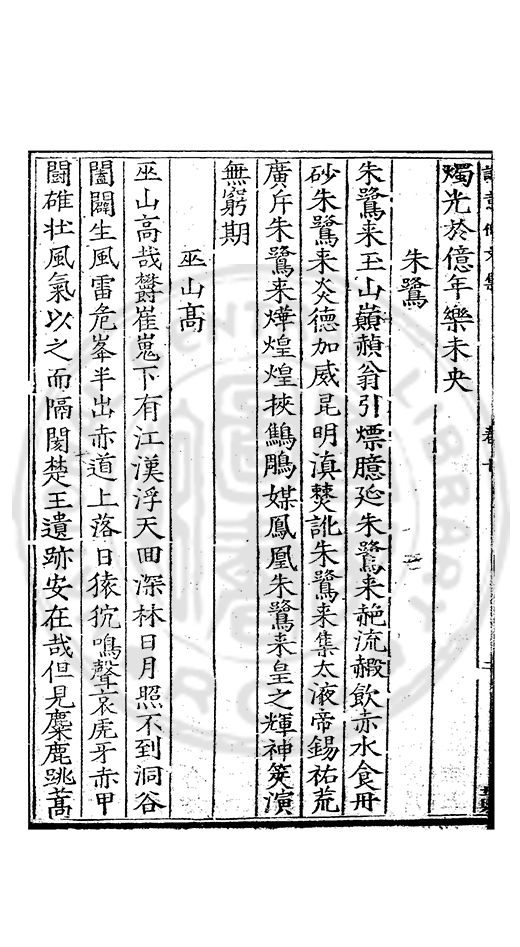 燭光於億年樂未央
朱鷺
朱鷺来玉山巔赪翁引熛臆㢟朱鷺来赩流赮飲赤水食丹
砂朱鷺来炎德加威昆明滇僰訛朱鷺来集太液帝錫祐荒
廣斥朱鷺来煒煌煌挾鷦鵬媒鳳凰朱鷺来皇之輝神筴演
無窮期
巫山高
巫山高哉欝崔嵬下有江漢浮天回深林日月照不到洞谷
闔闢生風雷危峯半出赤道上落日猿狖鳴聲哀虎牙赤甲
鬪雄壮風氣以之而隔閡楚王遺跡安在哉但見麋鹿跳蒿